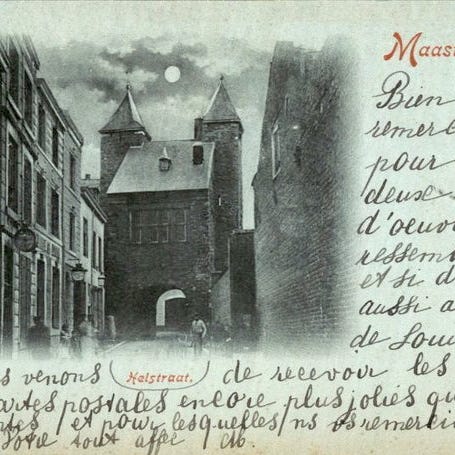 Maast
Bien
remerc
pour
deux
d'oeuv
ressem
et si d
aussi a
de Lou
s venons
Helstraat.
de recevoir les
artes postales encore plus jolies qu
tes et pour lesquelles ns vs remerci
Votre tout affec